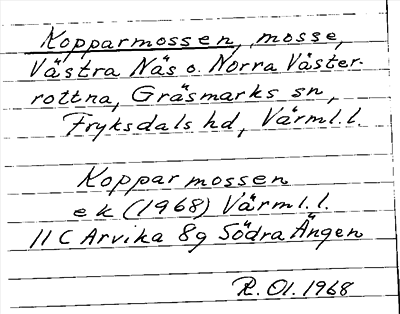 Kopparmossen, mosse,
Västra Näs o. Norra Väster-
rottna, Gräsmarks sn,
Fryksdals hd, Värml.l.
Kopparmossen
ek (1968) Värml.l.
11 C Arvika 8g Södra Ängen
R. Ol. 1968